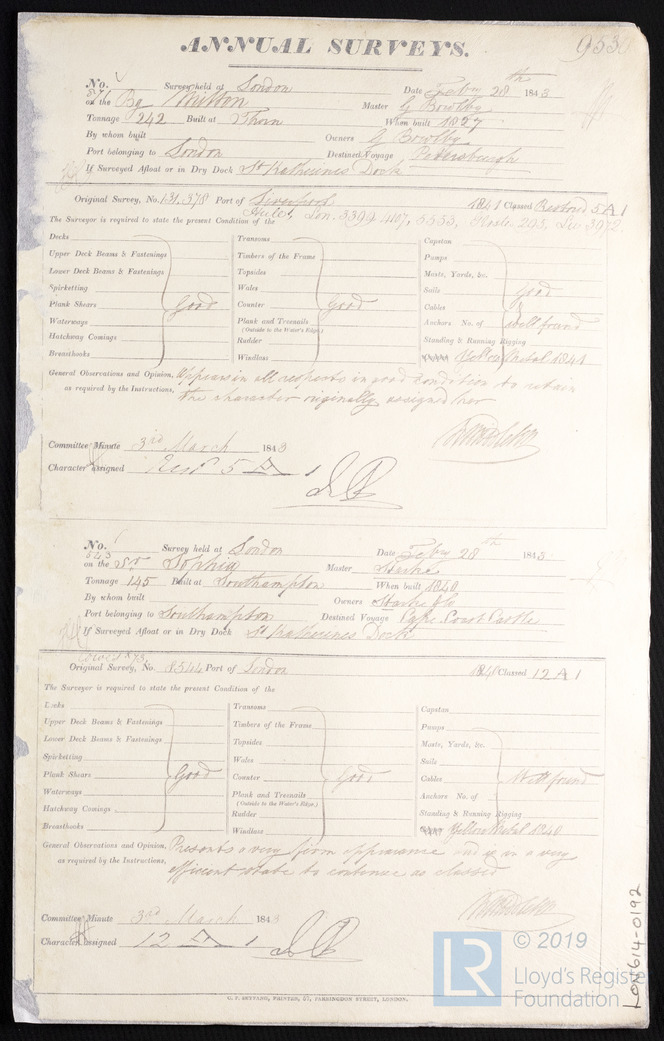 ANNUAL SURVEYS.
No. Survey held at London Date Feby 28th 1843
on the Bq Milton Master G Bowlby
Tonnage 242 Built at Thorn When built 1827
By whom built Owners G Bowlby
Port belonging to London Destined Voyage Petersburgh
If Surveyed Afloat or in Dry Dock St Katherines Dock
Original Survey, No. 131,378 Port of Liverpool 1841 Classed Restored 5 A 1
Hull, Lon. 3399 4107, 5553,
The Surveyor is required to state the present Condition of the
Decks Transoms Capstan
Upper Deck Beams & Fastenings Timbers of the Frame Pumps
Lower Deck Beams & Fastenings Topsides Masts, Yards, &c.
Spirketting Wales Sails Good
Plank Shears Good Counter Good Cables
Waterways Plank and Treenails Anchors No. of well found
(Outside to the Water's Edge.)
Hatchway Comings Rudder Standing & Running Rigging
Breasthooks Windlass Yellow Metal 1841
General Observations and Opinion, Appears in all respects in good condition to retain
as required by the Instructions, the character originally assigned her
Committee Minute 3rd March 1843
Character assigned 5 A 1
No. Survey held at London Date Feby 28th 1843
543
on the Sr Sophia Master
Tonnage 145 Built at Southampton When built 1840
By whom built Owners
Port belonging to Southampton Destined Voyage Cape Coast Castle
If Surveyed Afloat or in Dry Dock St Katherines Dock
Original Survey, No. 8544 Port of London 1840 Classed 12 A 1
The Surveyor is required to state the present Condition of the
Decks Transoms Capstan
Upper Deck Beams & Fastenings Timbers of the Frame Pumps
Lower Deck Beams & Fastenings Topsides Masts, Yards, &c.
Spirketting Wales Sails
Plank Shears Good Counter Good Cables Well found
Waterways Plank and Treenails Anchors No. of
(Outside to the Water's Edge.)
Hatchway Comings Rudder Standing & Running Rigging
Breasthooks Windlass Yellow Metal 1840
General Observations and Opinion, Presents a very firm appearance and is in a very
as required by the Instructions, efficient state to continue as classed
Committee Minute 3rd March 1843
Character assigned 12 A 1
G. F. BETTANS, PRINTER, 57, FARRINGDON STREET, LONDON.
LON614-0192
LR © 2019
Lloyd's Register
Foundation